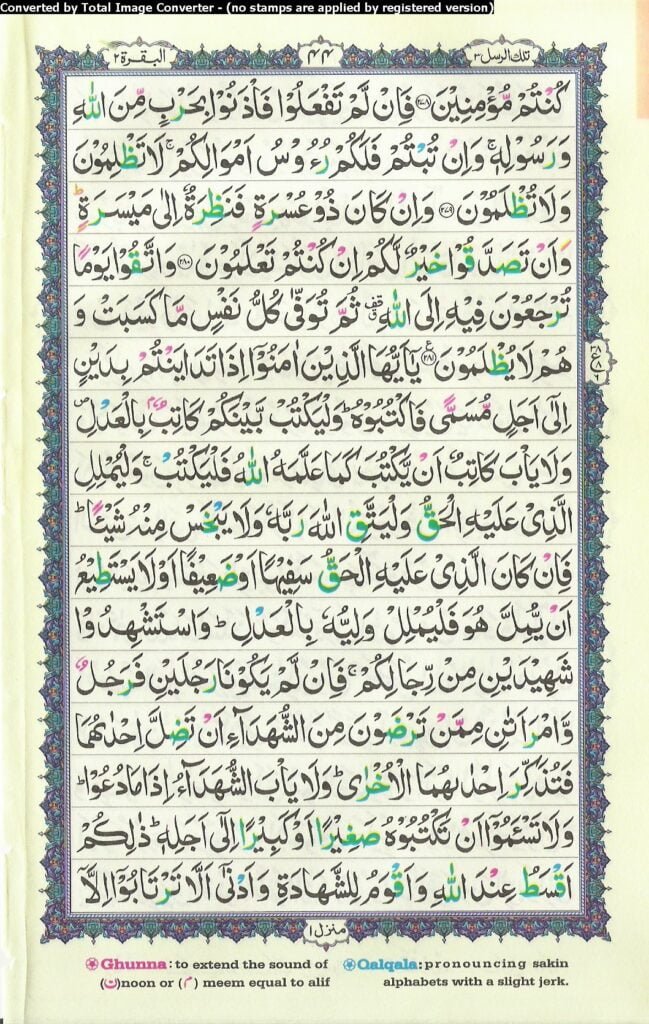 Converted by Total Image Converter - (no stamps are applied by registered version)
تلك الرسل ٣
٤٤
البقرة ٢
كُنْتُمْ مُّؤْمِنِيْنَ ﴿٢٧٨﴾ فَاِنْ لَّمْ تَفْعَلُوْا فَاْذَنُوْا بِحَرْبٍ مِّنَ اللّٰهِ
وَرَسُوْلِهٖ ۚ وَاِنْ تُبْتُمْ فَلَكُمْ رُءُوْسُ اَمْوَالِكُمْ ۚ لَا تَظْلِمُوْنَ
وَلَا تُظْلَمُوْنَ ﴿٢٧٩﴾ وَاِنْ كَانَ ذُوْ عُسْرَةٍ فَنَظِرَةٌ اِلٰى مَيْسَرَةٍ ؕ
وَاَنْ تَصَدَّقُوْا خَيْرٌ لَّكُمْ اِنْ كُنْتُمْ تَعْلَمُوْنَ ﴿٢٨٠﴾ وَاتَّقُوْا يَوْمًا
تُرْجَعُوْنَ فِيْهِ اِلَى اللّٰهِ ۗ ثُمَّ تُوَفّٰى كُلُّ نَفْسٍ مَّا كَسَبَتْ وَ
هُمْ لَا يُظْلَمُوْنَ ﴿٢٨١﴾ يٰۤاَيُّهَا الَّذِيْنَ اٰمَنُوْۤا اِذَا تَدَايَنْتُمْ بِدَيْنٍ
اِلٰۤى اَجَلٍ مُّسَمًّى فَاكْتُبُوْهُ ؕ وَلْيَكْتُبْ بَّيْنَكُمْ كَاتِبٌۢ بِالْعَدْلِ ۪
وَلَا يَاْبَ كَاتِبٌ اَنْ يَّكْتُبَ كَمَا عَلَّمَهُ اللّٰهُ فَلْيَكْتُبْ ۚ وَلْيُمْلِلِ
الَّذِيْ عَلَيْهِ الْحَقُّ وَلْيَتَّقِ اللّٰهَ رَبَّهٗ وَلَا يَبْخَسْ مِنْهُ شَيْـًٔا ؕ
فَاِنْ كَانَ الَّذِيْ عَلَيْهِ الْحَقُّ سَفِيْهًا اَوْ ضَعِيْفًا اَوْ لَا يَسْتَطِيْعُ
اَنْ يُّمِلَّ هُوَ فَلْيُمْلِلْ وَلِيُّهٗ بِالْعَدْلِ ؕ وَاسْتَشْهِدُوْا
شَهِيْدَيْنِ مِنْ رِّجَالِكُمْ ۚ فَاِنْ لَّمْ يَكُوْنَا رَجُلَيْنِ فَرَجُلٌ
وَّامْرَاَتٰنِ مِمَّنْ تَرْضَوْنَ مِنَ الشُّهَدَآءِ اَنْ تَضِلَّ اِحْدٰىهُمَا
فَتُذَكِّرَ اِحْدٰىهُمَا الْاُخْرٰى ؕ وَلَا يَاْبَ الشُّهَدَآءُ اِذَا مَا دُعُوْا ؕ
وَلَا تَسْـَٔمُوْۤا اَنْ تَكْتُبُوْهُ صَغِيْرًا اَوْ كَبِيْرًا اِلٰۤى اَجَلِهٖ ؕ ذٰلِكُمْ
اَقْسَطُ عِنْدَ اللّٰهِ وَاَقْوَمُ لِلشَّهَادَةِ وَاَدْنٰۤى اَلَّا تَرْتَابُوْۤا اِلَّاۤ
منزل ١
Ghunna: to extend the sound of (ن)noon or (م) meem equal to alif
Qalqala: pronouncing sakin alphabets with a slight jerk.